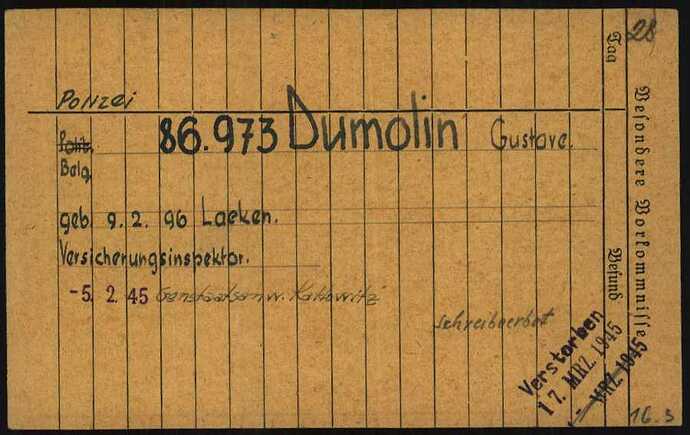 28
Polizei
Polit.
86.973 Dumolin Gustave.
Belg.
geb. 9. 2. 96 Laeken.
Versicherungsinspektor.
-5. 2. 45 Genstaatsanw. Kattowitz
Schreibverbot
Tag
Befund
Besondere Vorkommnisse
Verstorben
17. MRZ. 1945
MRZ. 1945
16. 3